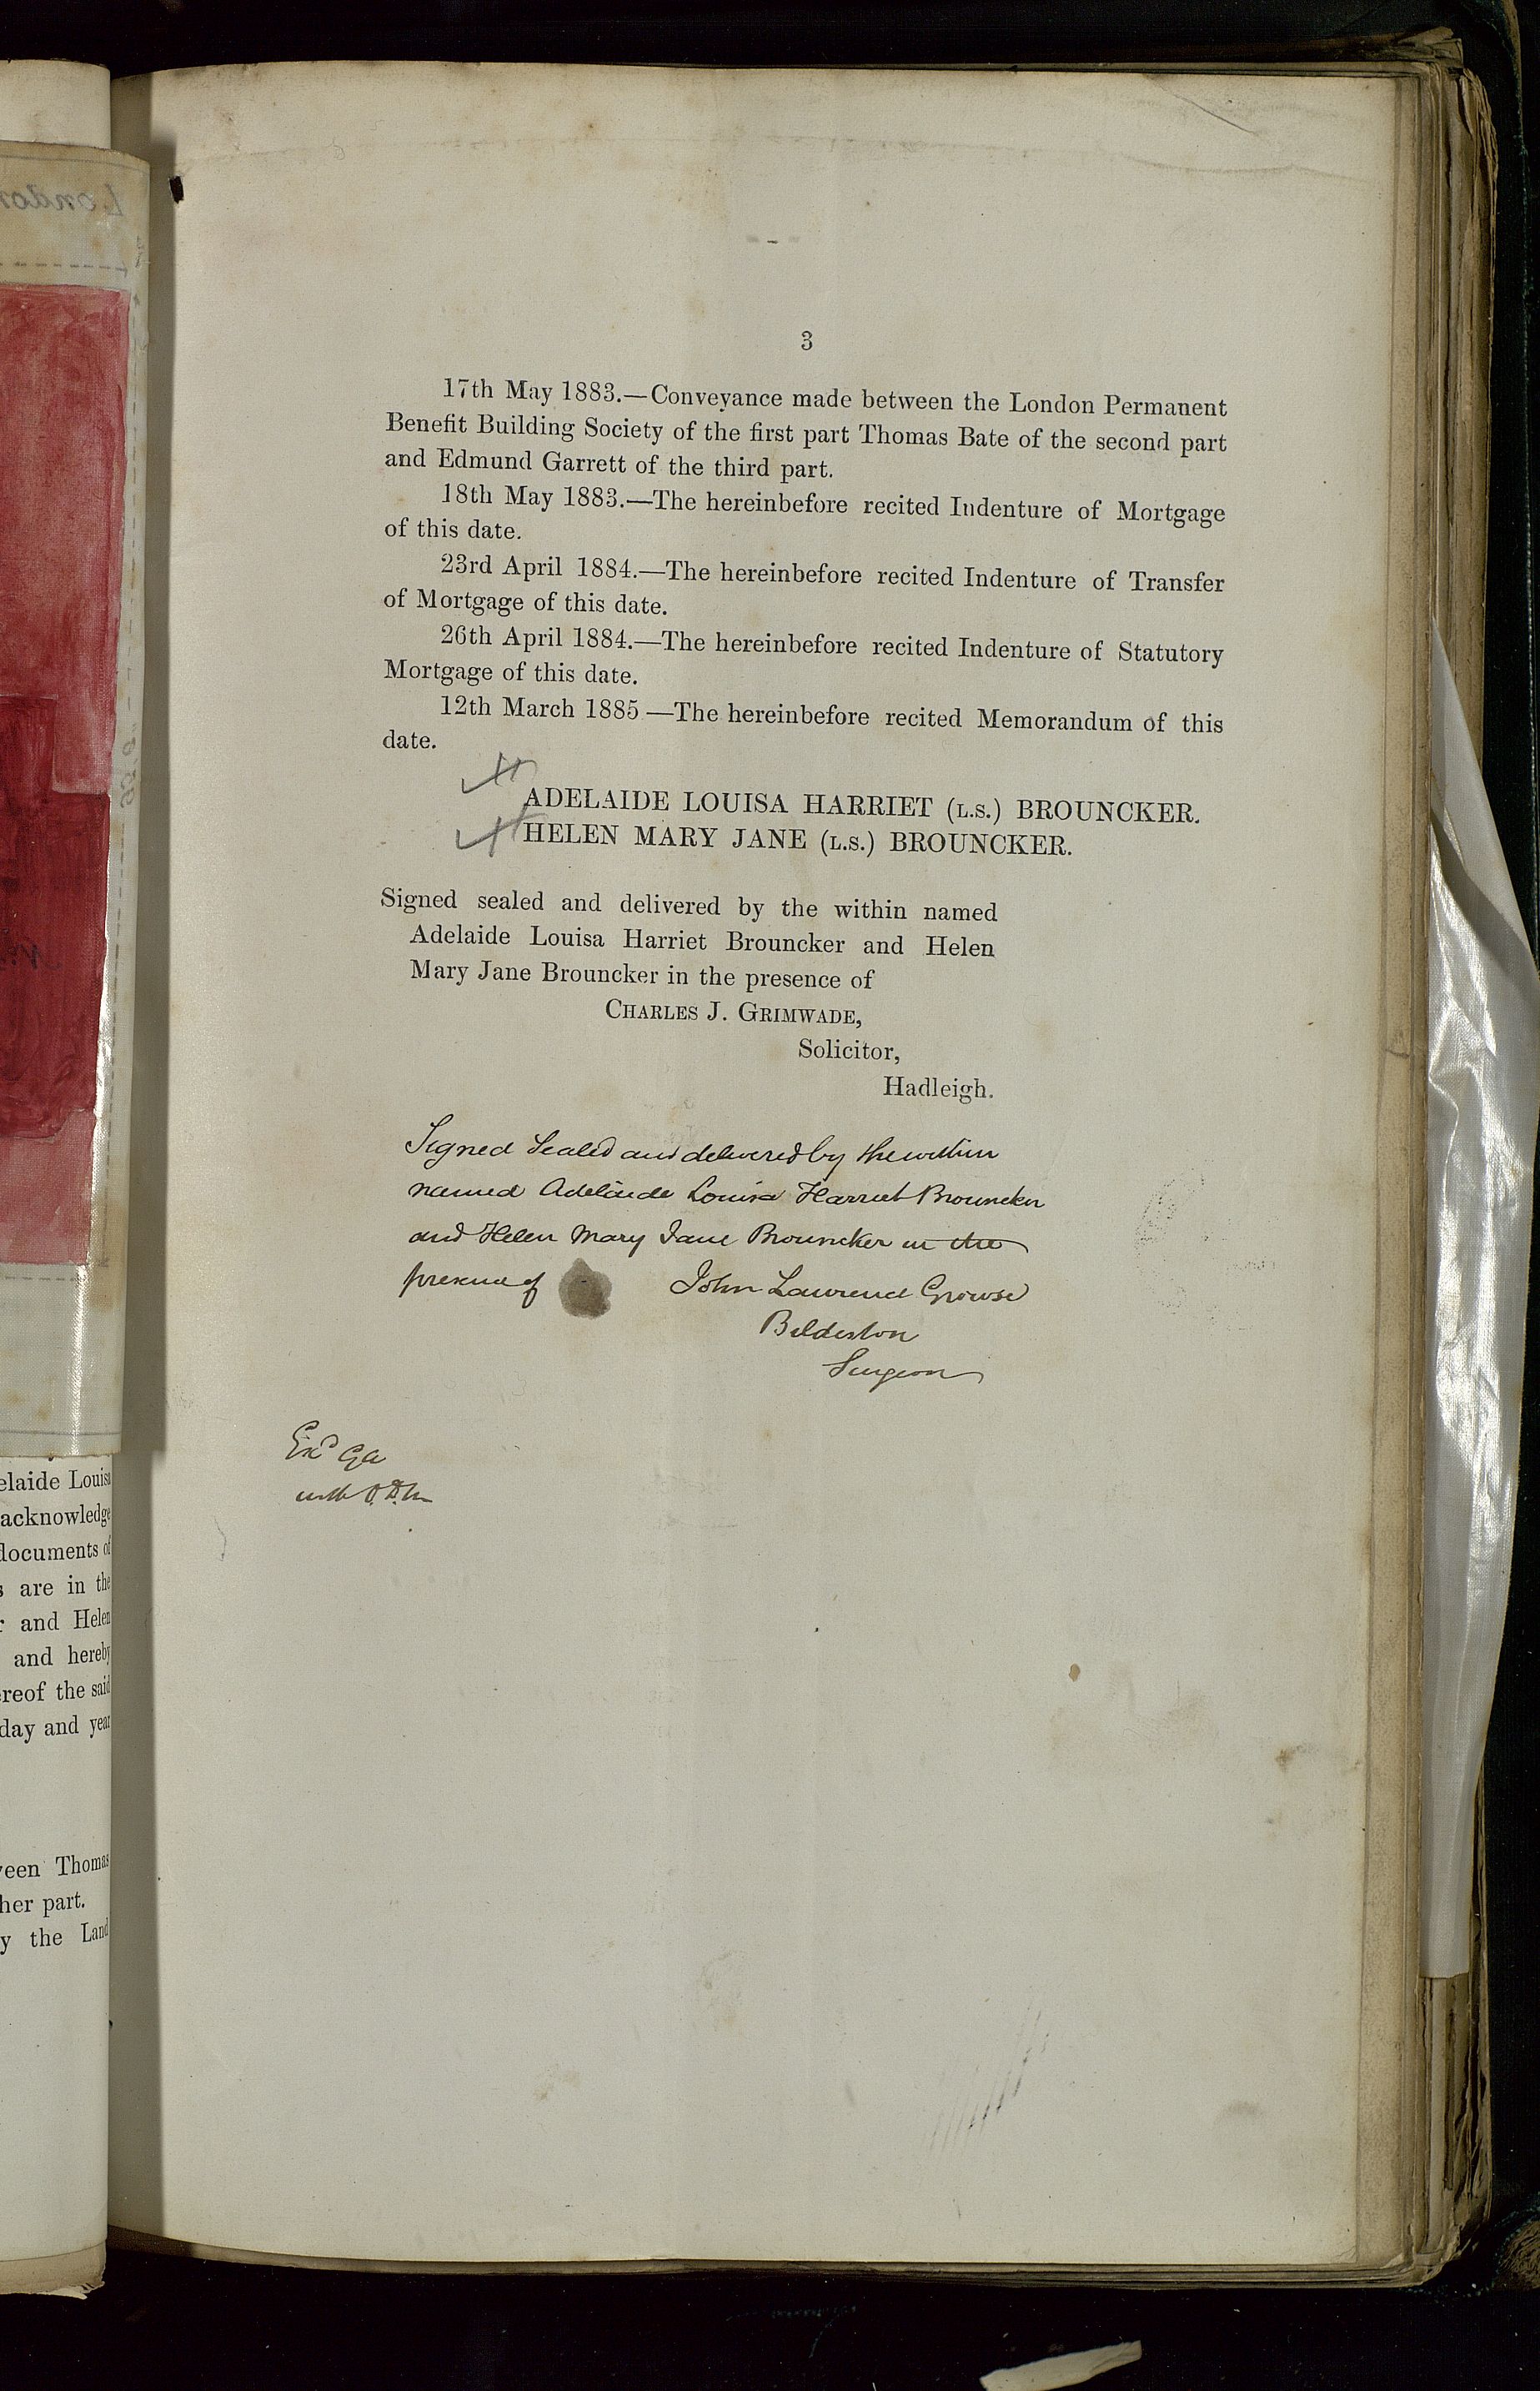 London
3
17th May 1883.—Conveyance made between the London Permanent
Benefit Building Society of the first part Thomas Bate of the second part
and Edmund Garrett of the third part.
18th May 1883.—The hereinbefore recited Indenture of Mortgage
of this date.
23rd April 1884.—The hereinbefore recited Indenture of Transfer
of Mortgage of this date.
26th April 1884.—The hereinbefore recited Indenture of Statutory
Mortgage of this date.
12th March 1885—The hereinbefore recited Memorandum of this
date.
ADELAIDE LOUISA HARRIET (L.S.) BROUNCKER.
HELEN MARY JANE (L.S.) BROUNCKER.
Signed sealed and delivered by the within named
Adelaide Louisa Harriet Brouncker and Helen
Mary Jane Brouncker in the presence of
CHARLES J. GRIMWADE,
Solicitor,
Hadleigh.
Signed Sealed and delivered by the within
named Adelaide Louisa Harriet Brouncker
and Helen Mary Jane Brouncker in the
presence of John Lawrence Growse
Bildeston
Surgeon
Exd
with
elaide Louisa
acknowledge
documents of
s are in the
r and Helen
and hereby
ereof the said
day and year
veen Thomas
her part.
y the Land